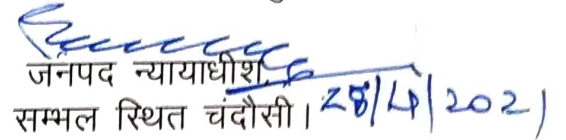 जनपद न्यायाधीश,
सम्भल स्थित चंदौसी। 28/4/2021